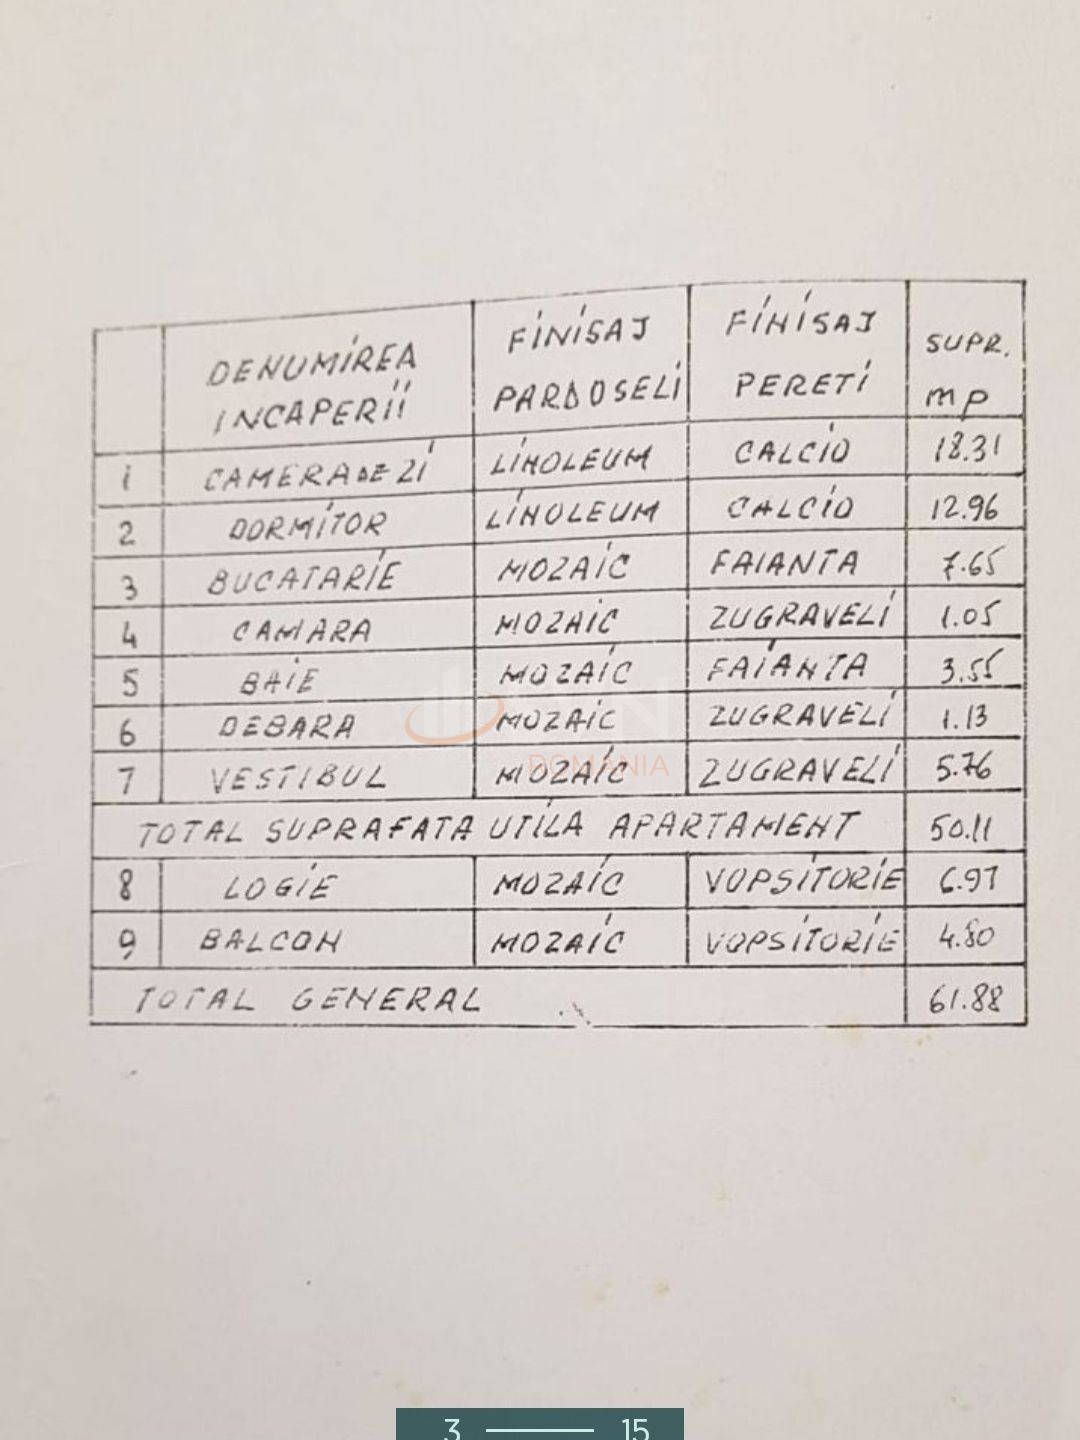 DENUMIREA INCAPERII FINISAJ PARDOSELI FINISAJ PERETI SUPR. mp
1 CAMERA DE ZI LINOLEUM CALCIO 18.31
2 DORMITOR LINOLEUM CALCIO 12.96
3 BUCATARIE MOZAIC FAIANTA 7.65
4 CAMARA MOZAIC ZUGRAVELI 1.05
5 BAIE MOZAIC FAIANTA 3.55
6 DEBARA MOZAIC ZUGRAVELI 1.13
7 VESTIBUL MOZAIC ZUGRAVELI 5.76
TOTAL SUPRAFATA UTILA APARTAMENT 50.11
8 LOGIE MOZAIC VOPSITORIE 6.97
9 BALCON MOZAIC VOPSITORIE 4.80
TOTAL GENERAL 61.88
ROMANIA
3 15